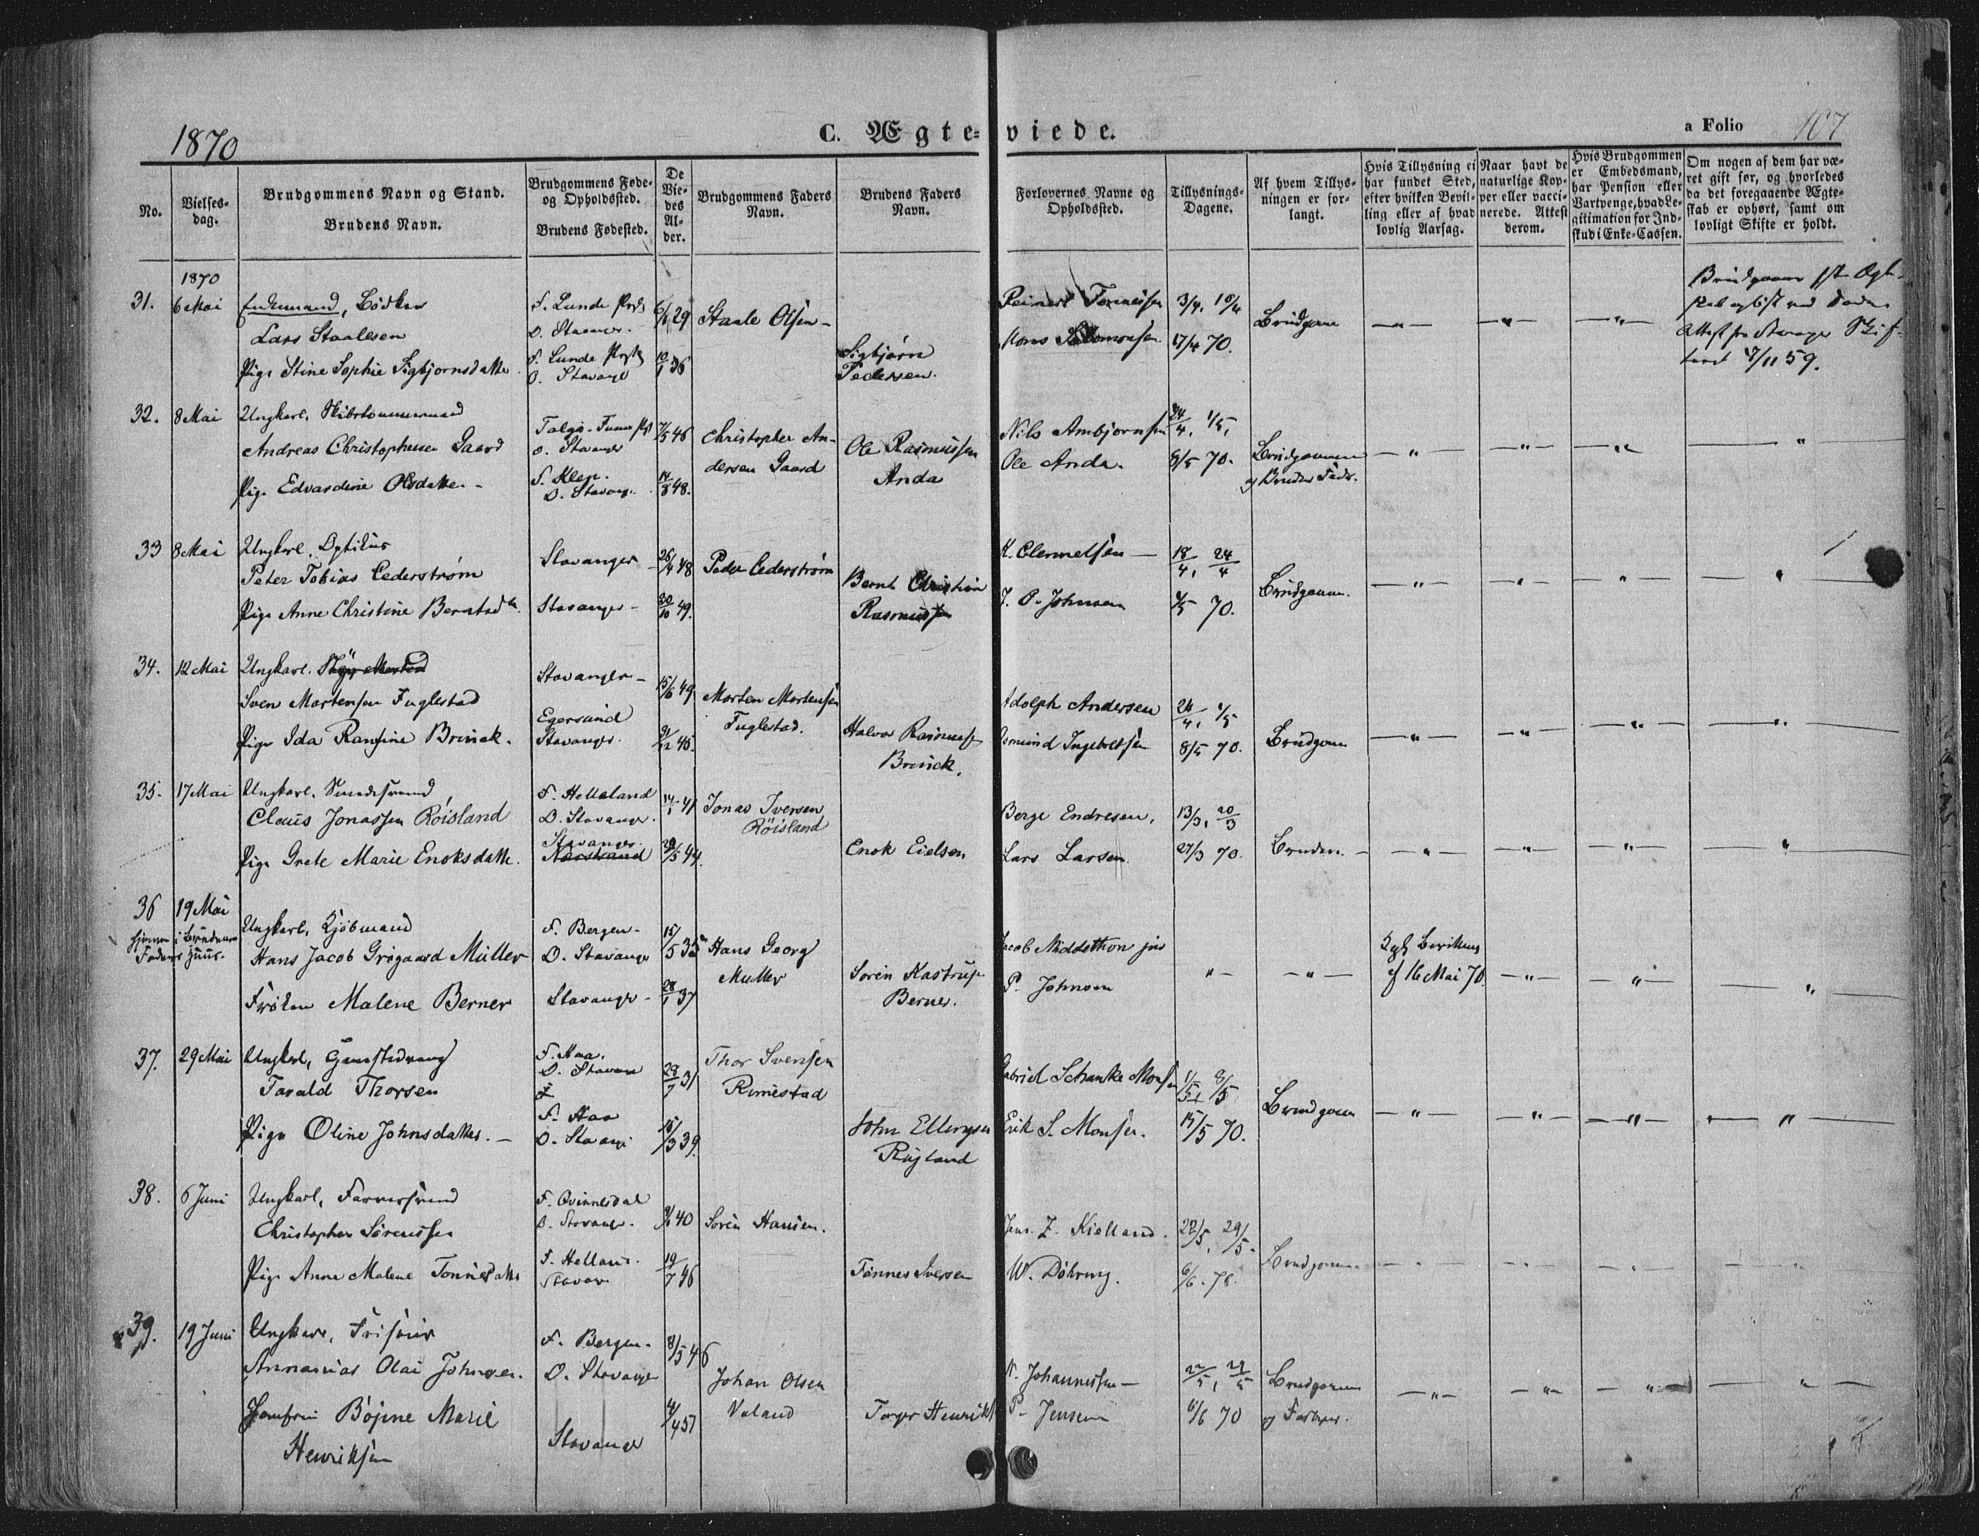 1870
C. Ægteviede.
a Folio 107
No.
Vielsesdag.
Brudgommens Navn og Stand.
Brudens Navn.
Brudgommens Føde- og Opholdssted.
Brudens Fødested.
De Viedes Alder.
Brudgommens Faders Navn.
Brudens Faders Navn.
Forlovernes Navne og Opholdssted.
Tillysnings-Dagene.
Af hvem Tillysningen er forlangt.
Hvis Tillysning ei har fundet Sted, efter hvilken Bevilling eller af hvad lovlig Aarsag.
Naar havt de naturlige Kopper eller vaccinerede. Attest derom.
Hvis Brudgommen er Embedsmand, har Pension eller Vartpenge, hvad Legitimation for Indskud i Enke-Cassen.
Om nogen af dem har været gift før, og hvorledes da det foregaaende Ægteskab er ophørt, samt om lovligt Skifte er holdt.
1870
31. 6 Mai Enkemand, Bødker
Lars Staalesen
F. Lunde
O. Stavanger
29 Staale Olsen
Pige Stine Sophie Sigbjørnsdatter
F. Lunde
O. Stavanger
36 Sigbjørn Pedersen.
3/4, 10/4
17/4 70.
Brudgom
7/11 59.
32. 8 Mai Ungkarl, Skibstømmermand
Andreas Christophersen Gaard
O. Stavanger
7/5 46 Christopher Andersen Gaard
Pige Edvardine Olsdatter
F. Klep.
O. Stavanger
48. Ole Rasmussen Anda
Nils Ambjørnsen
Ole Anda.
24/4, 1/5,
8/5 70.
Brudgommen og Brudens Fader
33 8 Mai Ungkarl, Optikus
Peter Tobias Cederstrøm
Stavanger
26/4 48 Peder Cederstrøm
Pige Anne Christine Berntsdtr.
Stavanger
30/10 49. Bernt Christian Rasmussen
J. P. Johnsen
18/4, 24/4
1/5 70.
Brudgommen.
34. 12 Mai Ungkarl.
Sven Mortensen Fuglestad
Stavanger
49. Morten Mortensen Fuglestad.
Pige Ida Ransine Brinck.
Egersund
Stavanger.
45. Halvor Rasmussen Brinck.
Adolph Andersen
Ingebretsen
24/4, 1/5
8/5 70.
Brudgom
35. 17 Mai Ungkarl,
Claus Jonassen Røisland
F. Helleland
O. Stavanger.
41 Jonas Iversen Røisland
Pige Grete Marie Enoksdatter.
Stavanger.
Nærstrand
44. Enok Eielsen
Børge Endresen,
Lars Larsen.
13/3, 20/3
27/3 70.
Bruden
36 19 Mai
hjemme i Brudens Faders Huus.
Ungkarl, Kjøbmand
Hans Jacob Grøgaard Müller
F. Bergen
O. Stavanger
15/5 35 Hans Georg Müller
Frøken Malene Berner
Stavanger
28/1 37 Søren Kastrup Berner.
Jacob Middelthon jun
P. Johnsen
af 16 Mai 70.
37. 29 Mai Ungkarl,
Tarald Thorsen
F. Haa.
O. Stavanger
31 Thor Svensen Rimestad
Pige Oline Johnsdatter.
F. Haa
O. Stavanger
39. John Ellingsen
Gabriel Schanke Monsen
Erik S. Monsen.
1/5, 8/5
15/5 70.
Brudgom
38. 6 Juni Ungkarl,
Christopher Sørensen
F. Qvinnesdal
O. Stavanger.
40 Søren Hansen.
Pige Anne Malene Tønnesdatter
F. Helland
Stavanger
19/7 46 Tønnes Iversen
Jens Z. Kielland.
W. Døhring.
22/5, 29/5.
6/6. 70.
Brudgommen
39. 19 Juni Ungkarl, Frisør
Annanias Olai Johnsen.
F. Bergen
O. Stavanger
8/5 46 Johan Olsen Valand
Jomfru Bøjine Marie Henriksen
Stavanger
Torger Henriksen
N. Johannessen
P. Jensen
22/5, 29/5
6/6 70
Brudgommen og